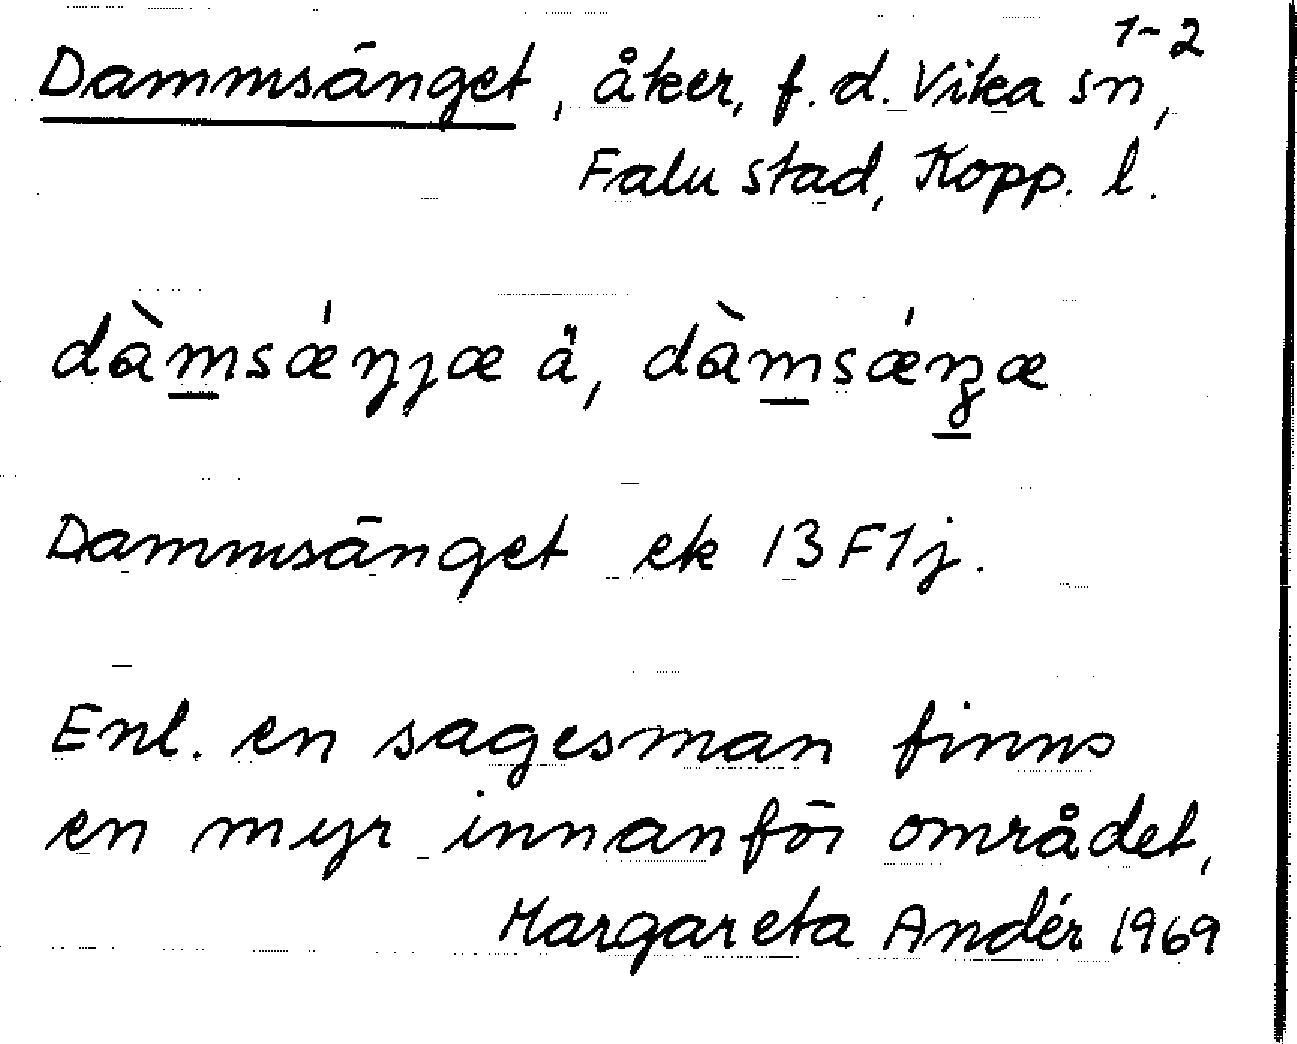 Dammsänget, åker, f. d. Vika sn 1-2,
Falu stad, Kopp. l.
dàm̲sǽŋɟæ ä̀, dàm̲sǽŋ̲æ
Dammsänget ek 13 F1j.
Enl. en sagesman finns
en myr innanför området,
Margareta Andér 1969